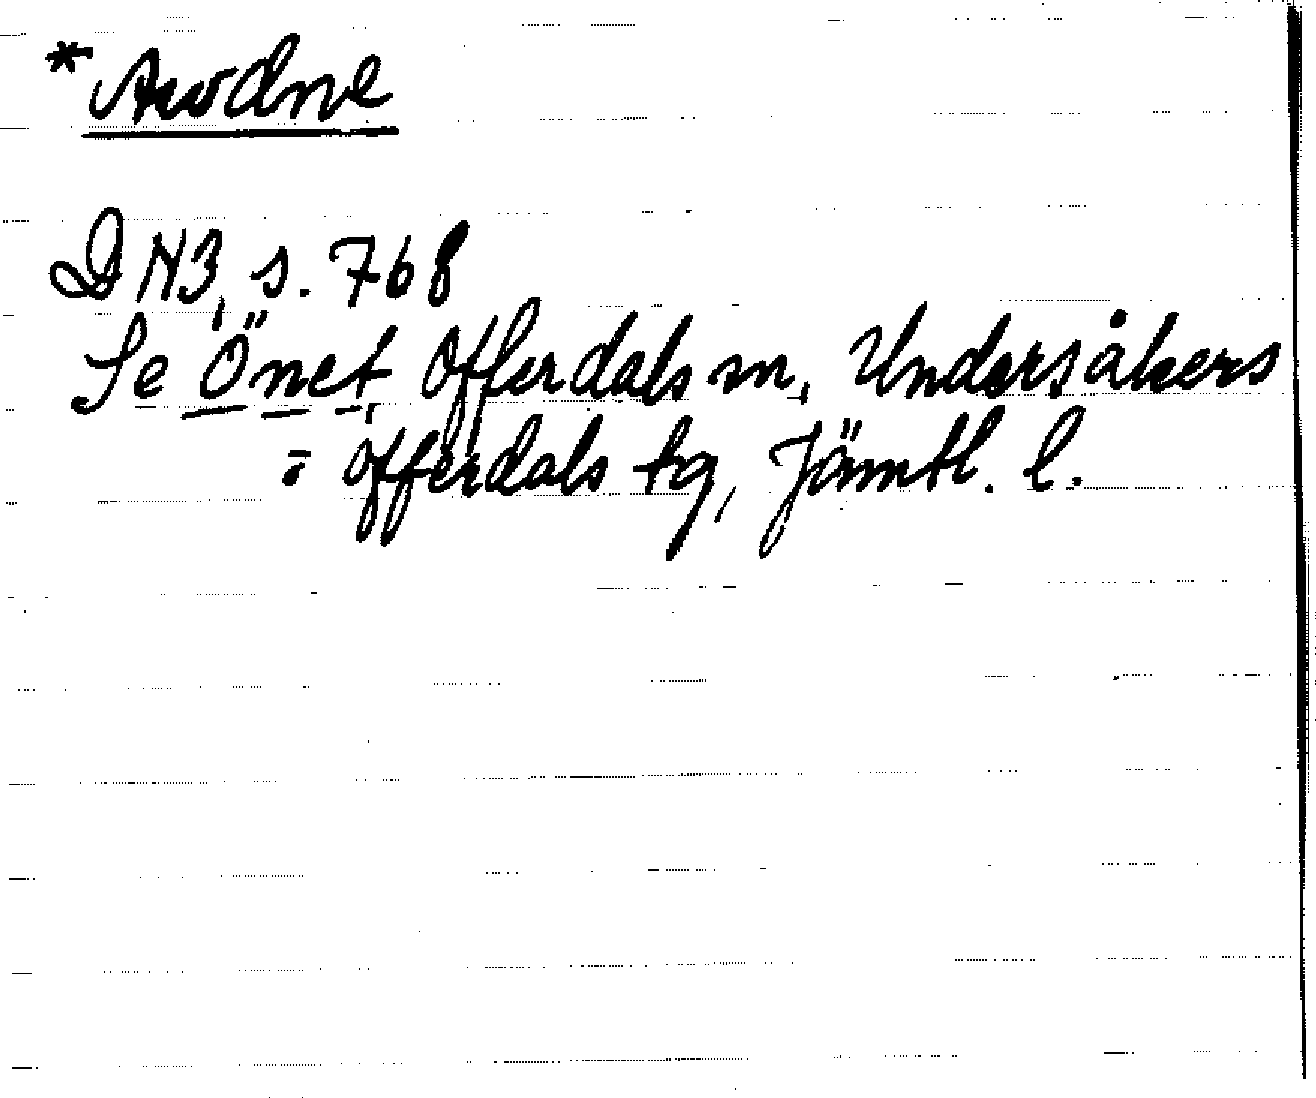 * Awdne
DN3, s. 768
Se Önet, Offerdals sn, Undersåkers
= Offerdals tg, Jämtl. l.